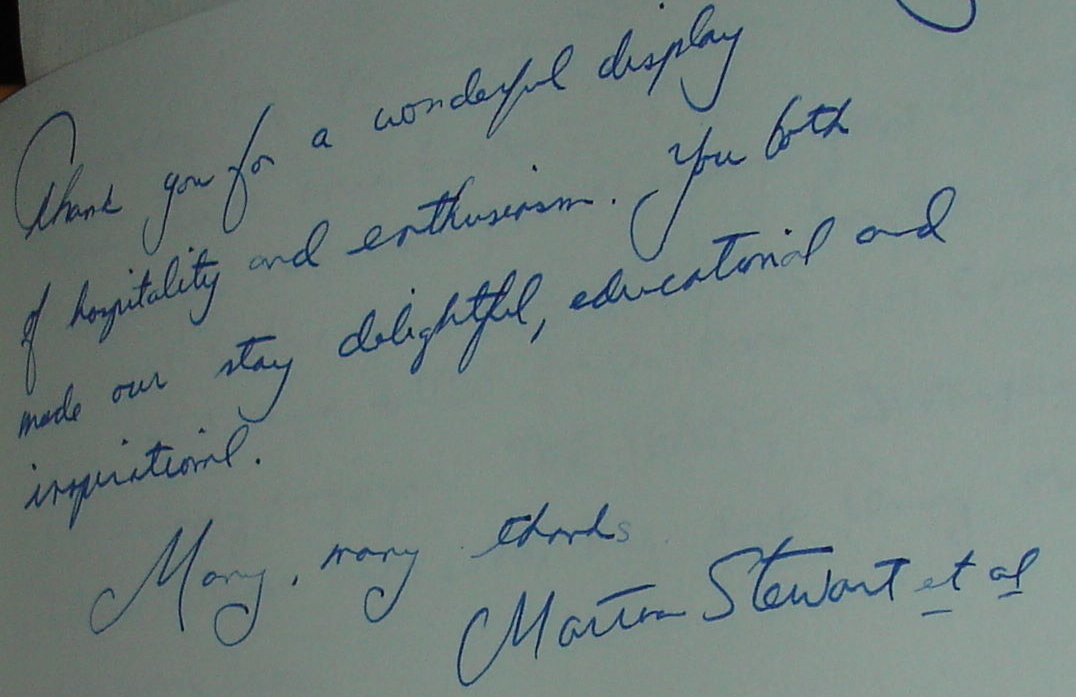 Thank you for a wonderful display
of hospitality and enthusiasm. You both
made our stay delightful, educational and
inspirational.
Many, many thanks
Stewart et al